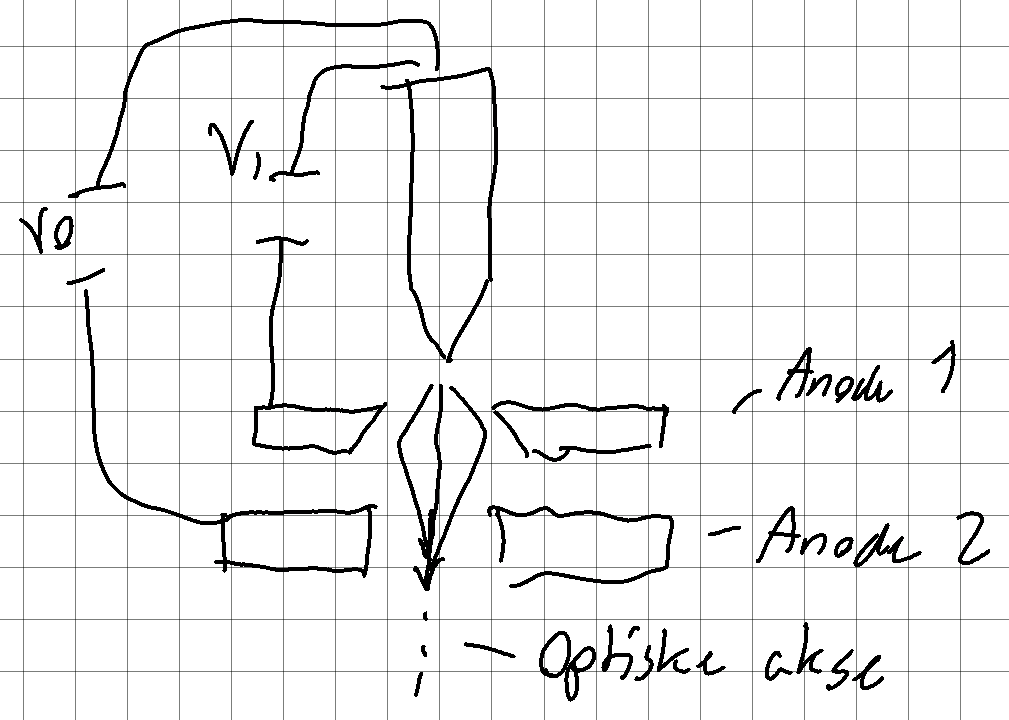 V1
V0
Anode 1
Anode 2
Optiske akse